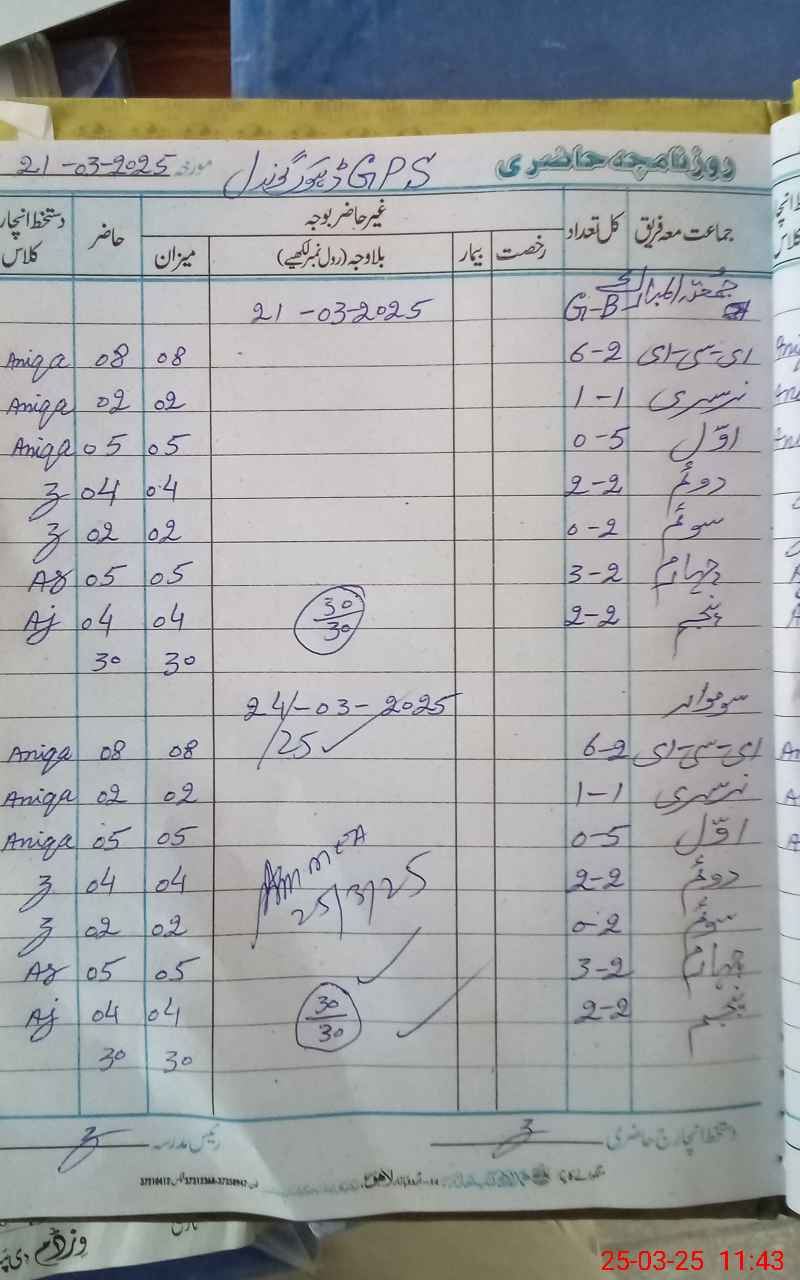 روزنامچہ حاضری GPS مورخہ 21-03-2025
جماعت معہ فریق کل تعداد غیر حاضر بوجہ حاضر دستخط انچارج کلاس
رخصت بیمار بلاوجہ (رول نمبر لکھیے) میزان
جمعۃ المبارک G-B 21-03-2025
ای-سی-ای 6-2 08 08 Aniqa
نرسری 1-1 02 02 Aniqa
اوّل 0-5 05 05 Aniqa
دوئم 2-2 04 04
سوئم 0-2 02 02
چہارم 3-2 05 05
پنجم 2-2 30/30 04 04 Aj
30 30
سوموار 24-03-2025
/25
ای-سی-ای 6-2 08 08 Aniqa
نرسری 1-1 02 02 Aniqa
اوّل 0-5 05 05 Aniqa
دوئم 2-2 25/3/25 04 04
سوئم 0-2 02 02
چہارم 3-2 05 05
پنجم 2-2 30/30 04 04 Aj
30 30
دستخط انچارج حاضری رئیس مدرسہ
لاہور
وزڈم
25-03-25 11:43